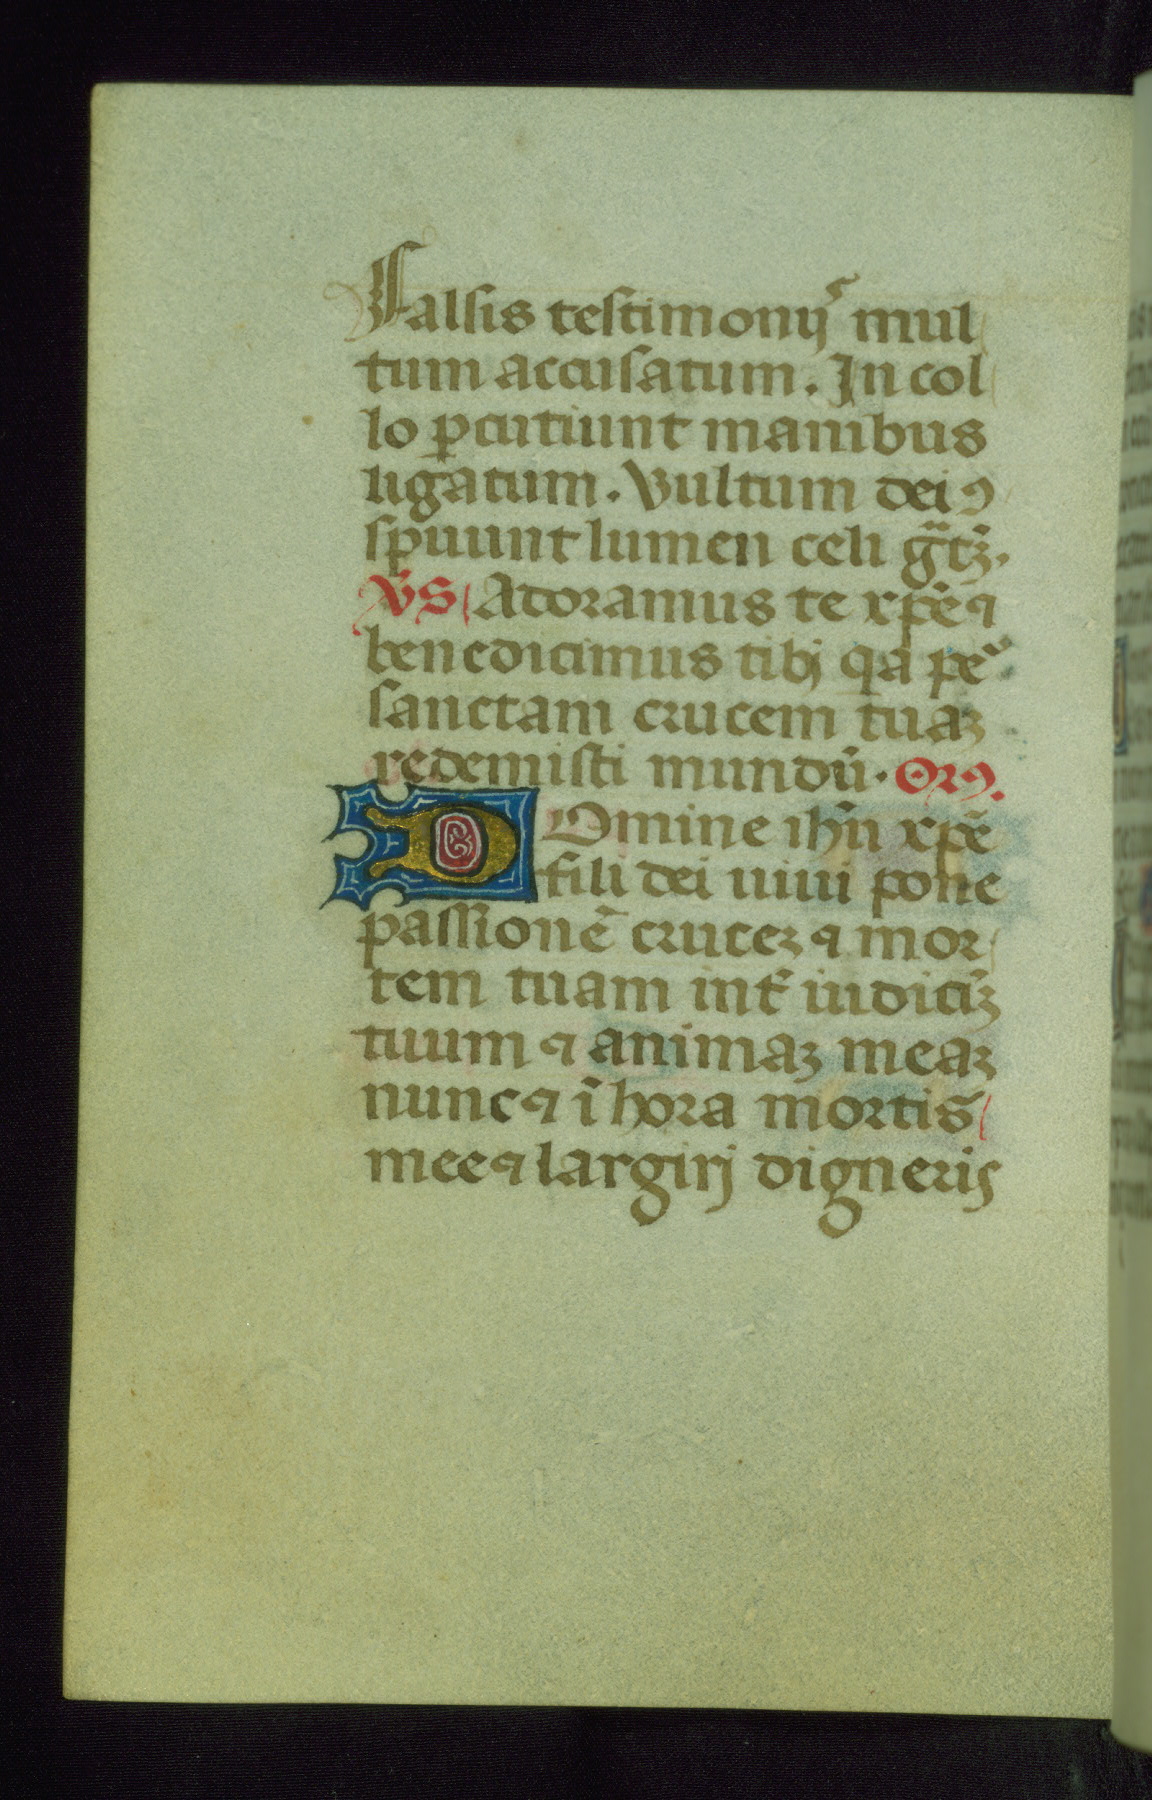 Falsis testimonijs mul
tum accusatum. In col
lo ꝑcutiunt manibus
ligatum. Vultum dei ꝯ
spuunt lumen celi gᷓtꝫ.
V̉S Adoramus te xp̄e ⁊
benedicimus tibj qa pe
sanctam crucem tuaꝫ
redemisti mundū. Orꝯ.
DOmine ihū xp̄e
fili dei uiui pone
passionē cruceꝫ ⁊ mor
tem tuam int̉ iudiciꝫ
tuum ⁊ animaꝫ meaꝫ
nunc ⁊ ī hora mortis
mee ⁊ largirj digneris